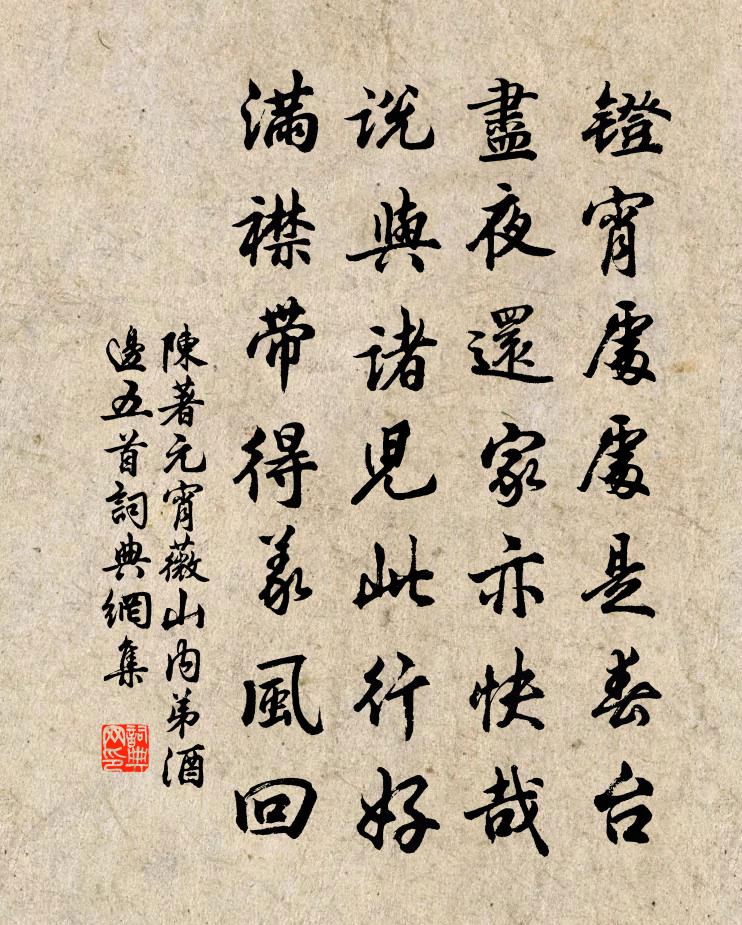 镫宵處處是春台
盡夜還家亦快哉
説與諸兒此行好
滿襟帶得羲風回
陳著元宵薇山内弟酒
邊五首詞典網集
詞典
网印